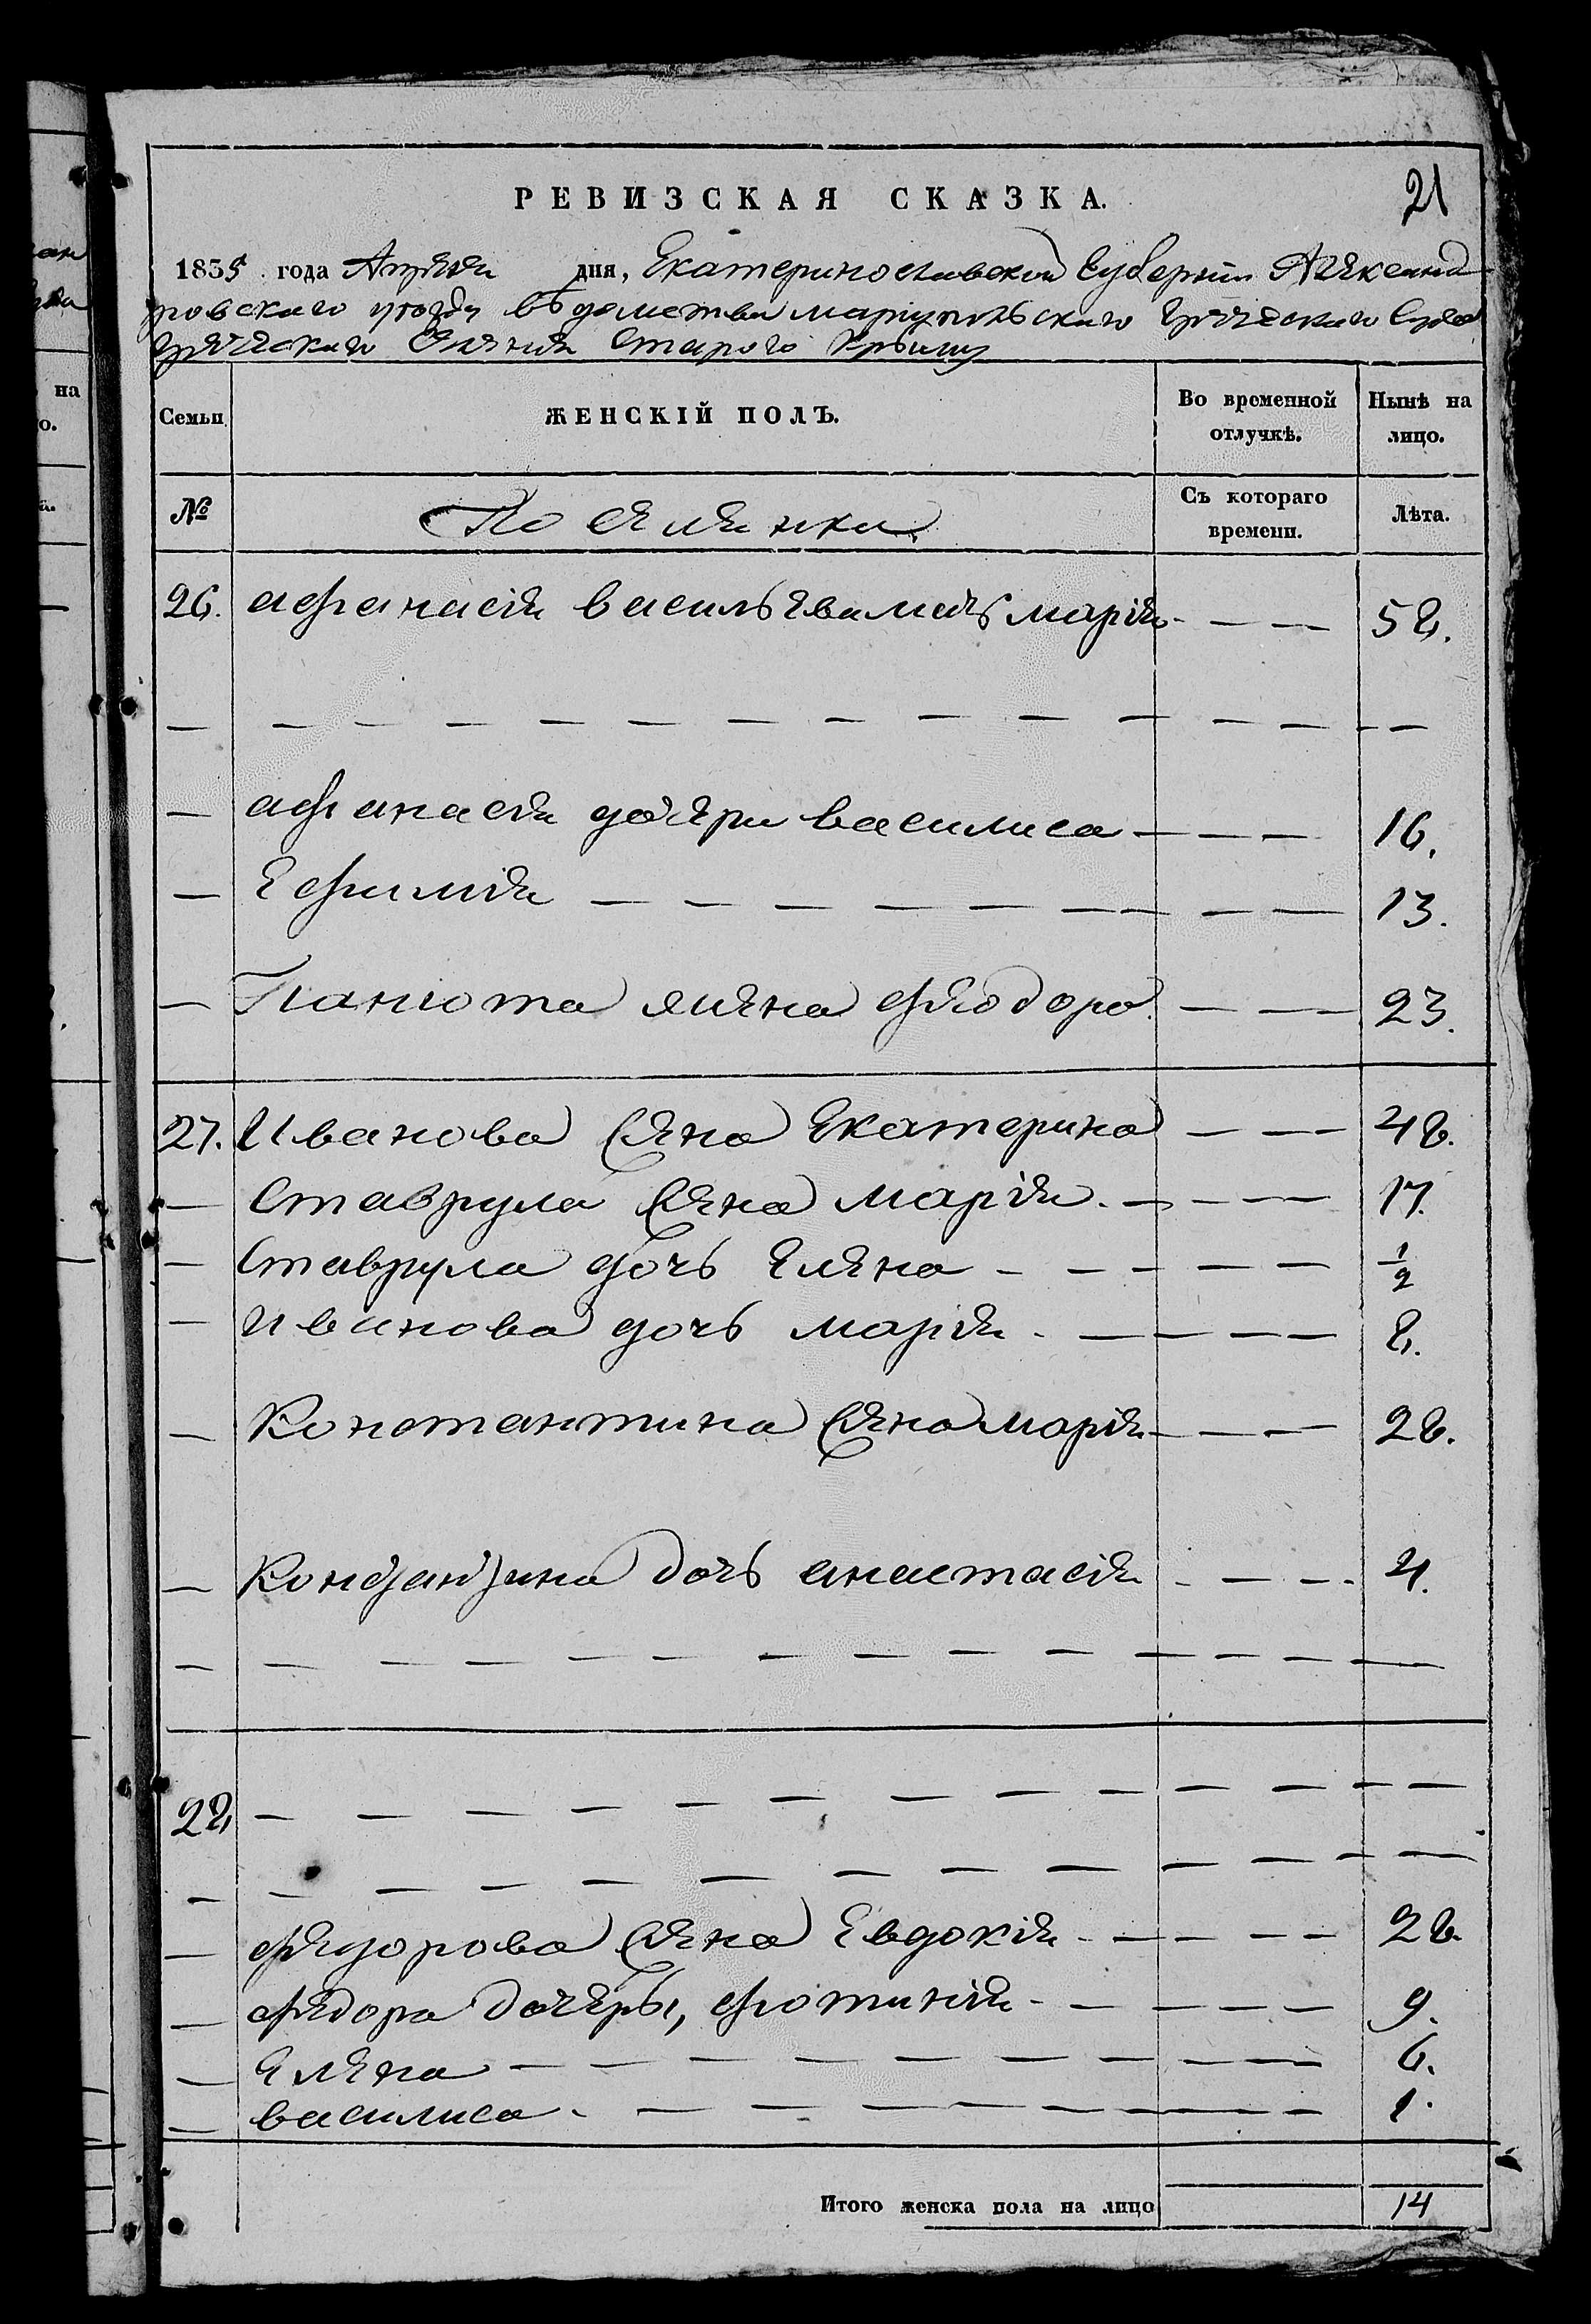 21
РЕВИЗСКАЯ СКАЗКА.
1835 года Апреля дня, Екатеринославской Губернии Александ
ровского уезду ведомства мариупольского греческого Суда
греческого Селения Старого Крыму
Семьи ЖЕНСКІЙ ПОЛЪ. Во временной отлучкѣ. Нынѣ на лицо.
№ Поселянки Съ котораго времени. Лѣта.
26. афанасія васильева мать марія — — — 58.
— — — — — — — — — — — — — — —
— афанасія дочери василиса — — — 16.
— Ефимія — — — — — — — — — 13.
— Панюта жена феодора — — — 23.
27. Иванова жена Екатерина — — — 48.
— Ставрула жена марія — — — 17.
— Ставрула дочь Елена — — — — — 1/2
— Иванова дочь марія — — — — 8.
— Константина жена марія — — — 28.
— Константина дочь анастасія — — — 4.
— — — — — — — — — — — — — — —
28 — — — — — — — — — — — — — —
— — — — — — — — — — — — — — —
— федорова жена Евдокія — — — — 28.
— федора дочеры, фотинія — — — — 9.
— Елена — — — — — — — — — 6.
— василиса — — — — — — — — 1.
Итого женска пола на лицо 14
на
о.